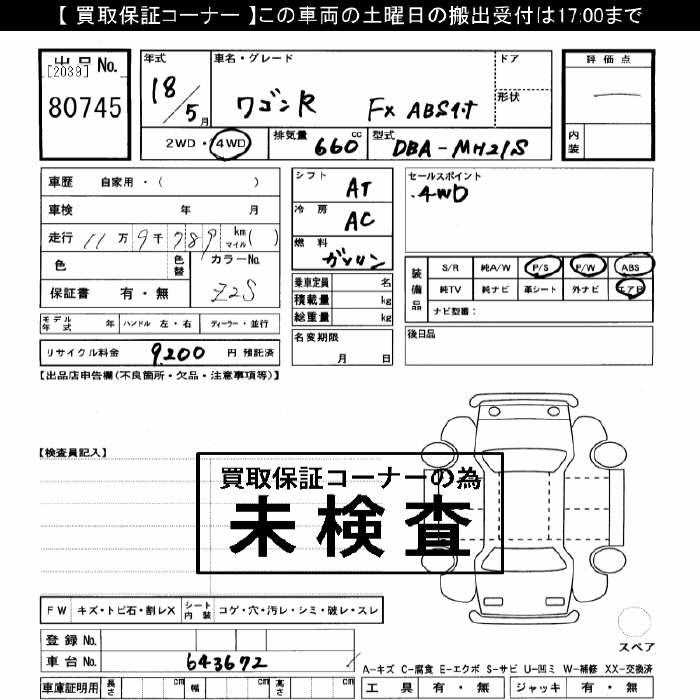 【 買取保証コーナー 】この車両の土曜日の搬出受付は17:00まで
出品 No.
[2039]
80745
年式
18/5月
車名・グレード
ワゴンR FX ABSｲ･ﾅ
ドア
形状
評価点
内装
2WD・4WD
排気量 660 cc
型式 DBA-MH21S
車歴 自家用・( )
車検 年 月
走行 11万9千789 km マイル( )
色
色替
カラーNo.
Z2S
保証書 有・無
モデル年式 年
ハンドル 左・右
ディーラー・並行
リサイクル料金 9,200 円 預託済
シフト AT
冷房 AC
燃料 ガソリン
乗車定員 名
積載量 kg
総重量 kg
名変期限
月 日
セールスポイント
.4WD
装備品
S/R 純A/W P/S P/W ABS
純TV 純ナビ 革シート 外ナビ エアB
ナビ型番:
後日品
【出品店申告欄(不良箇所・欠品・注意事項等)】
【検査員記入】
買取保証コーナーの為
未検査
FW キズ・トビ石・割レX
シート内装 コゲ・穴・汚レ・シミ・破レ・スレ
登録 No.
車台 No. 643672
スペア
A-キズ C-腐食 E-エクボ S-サビ U-凹ミ W-補修 XX-交換済
車庫証明用 長さ cm 幅 cm 高さ cm
工具 有・無
ジャッキ 有・無